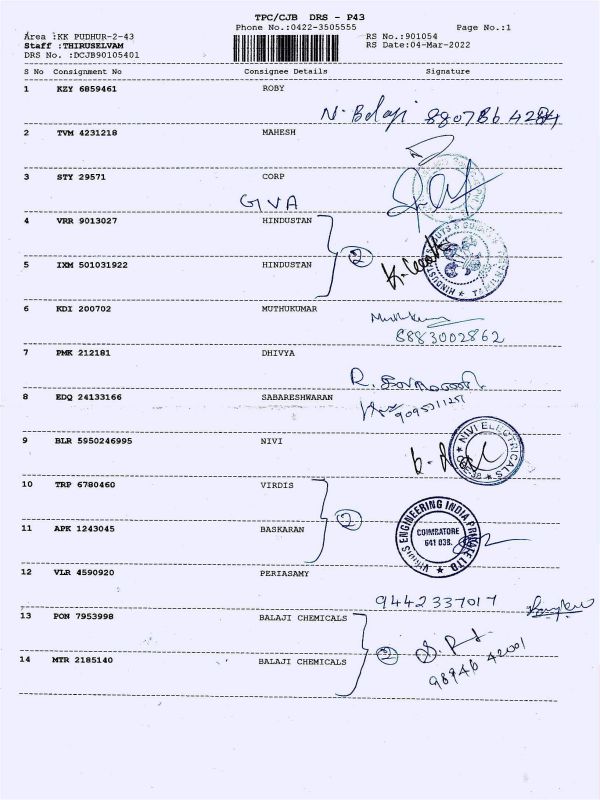 TPC/CJB DRS - P43
Area :KK PUDHUR-2-43 Phone No.:0422-3505555 Page No.:1
Staff :THIRUSELVAM RS No.:901054
DRS No. :DCJB90105401 RS Date:04-Mar-2022
S No Consignment No Consignee Details Signature
1 KZY 6859461 ROBY
N. Balaji
2 TVM 4231218 MAHESH
3 STY 29571 CORP
GIVA
4 VRR 9013027 HINDUSTAN
5 IXM 501031922 HINDUSTAN
2
6 KDI 200702 MUTHUKUMAR
8883002862
7 PMK 212181 DHIVYA
8 EDQ 24133166 SABARESHWARAN
9 BLR 5950246995 NIVI
NIVI ELECTRICALS
10 TRP 6780460 VIRDIS
11 APK 1243045 BASKARAN
2
ENGINEERING INDIA PRIVATE LTD.
COIMBATORE
641 038.
12 VLR 4590920 PERIASAMY
9442337017
13 PON 7953998 BALAJI CHEMICALS
14 MTR 2185140 BALAJI CHEMICALS
2
98946 42001